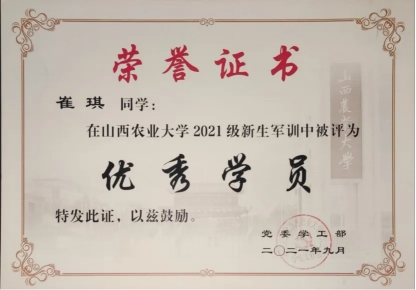 荣誉证书
崔琪 同学：
在山西农业大学2021级新生军训中被评为
优秀学员
特发此证，以兹鼓励。
党委学工部
二〇二一年九月
山西农业大学